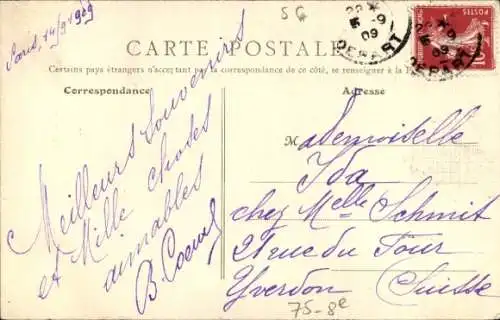 Paris, 14/9 1909
SG
CARTE POSTALE
Certains pays étrangers n'acceptant pas la correspondance de ce côté, se renseigner à la
Correspondance
Adresse
Meilleurs souvenirs
et Mille choses
aimables
B.
Mademoiselle
Ida
chez Melle Schmit
21 rue du Four
Yverdon Suisse
75-8e
POSTES
DEPART
9
09
DEPART
9
09